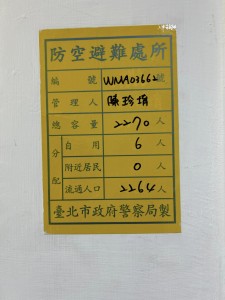 防空避難處所
編號 WMA03662 號
管理人 陳珍娟
總容量 2270 人
分配 自用 6 人
附近居民 0 人
流通人口 2264 人
臺北市政府警察局製